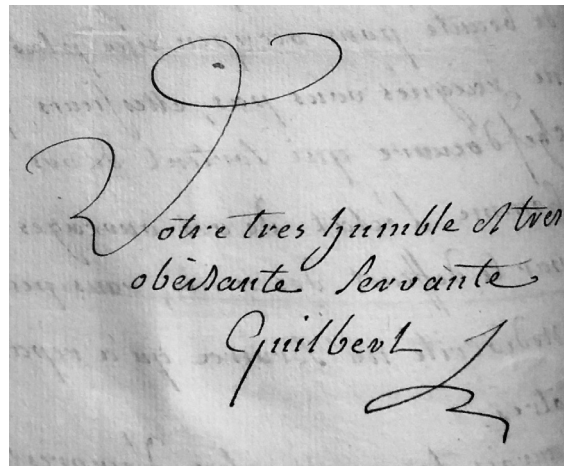 Votre tres humble et tres
obeissante servante
Guilbert